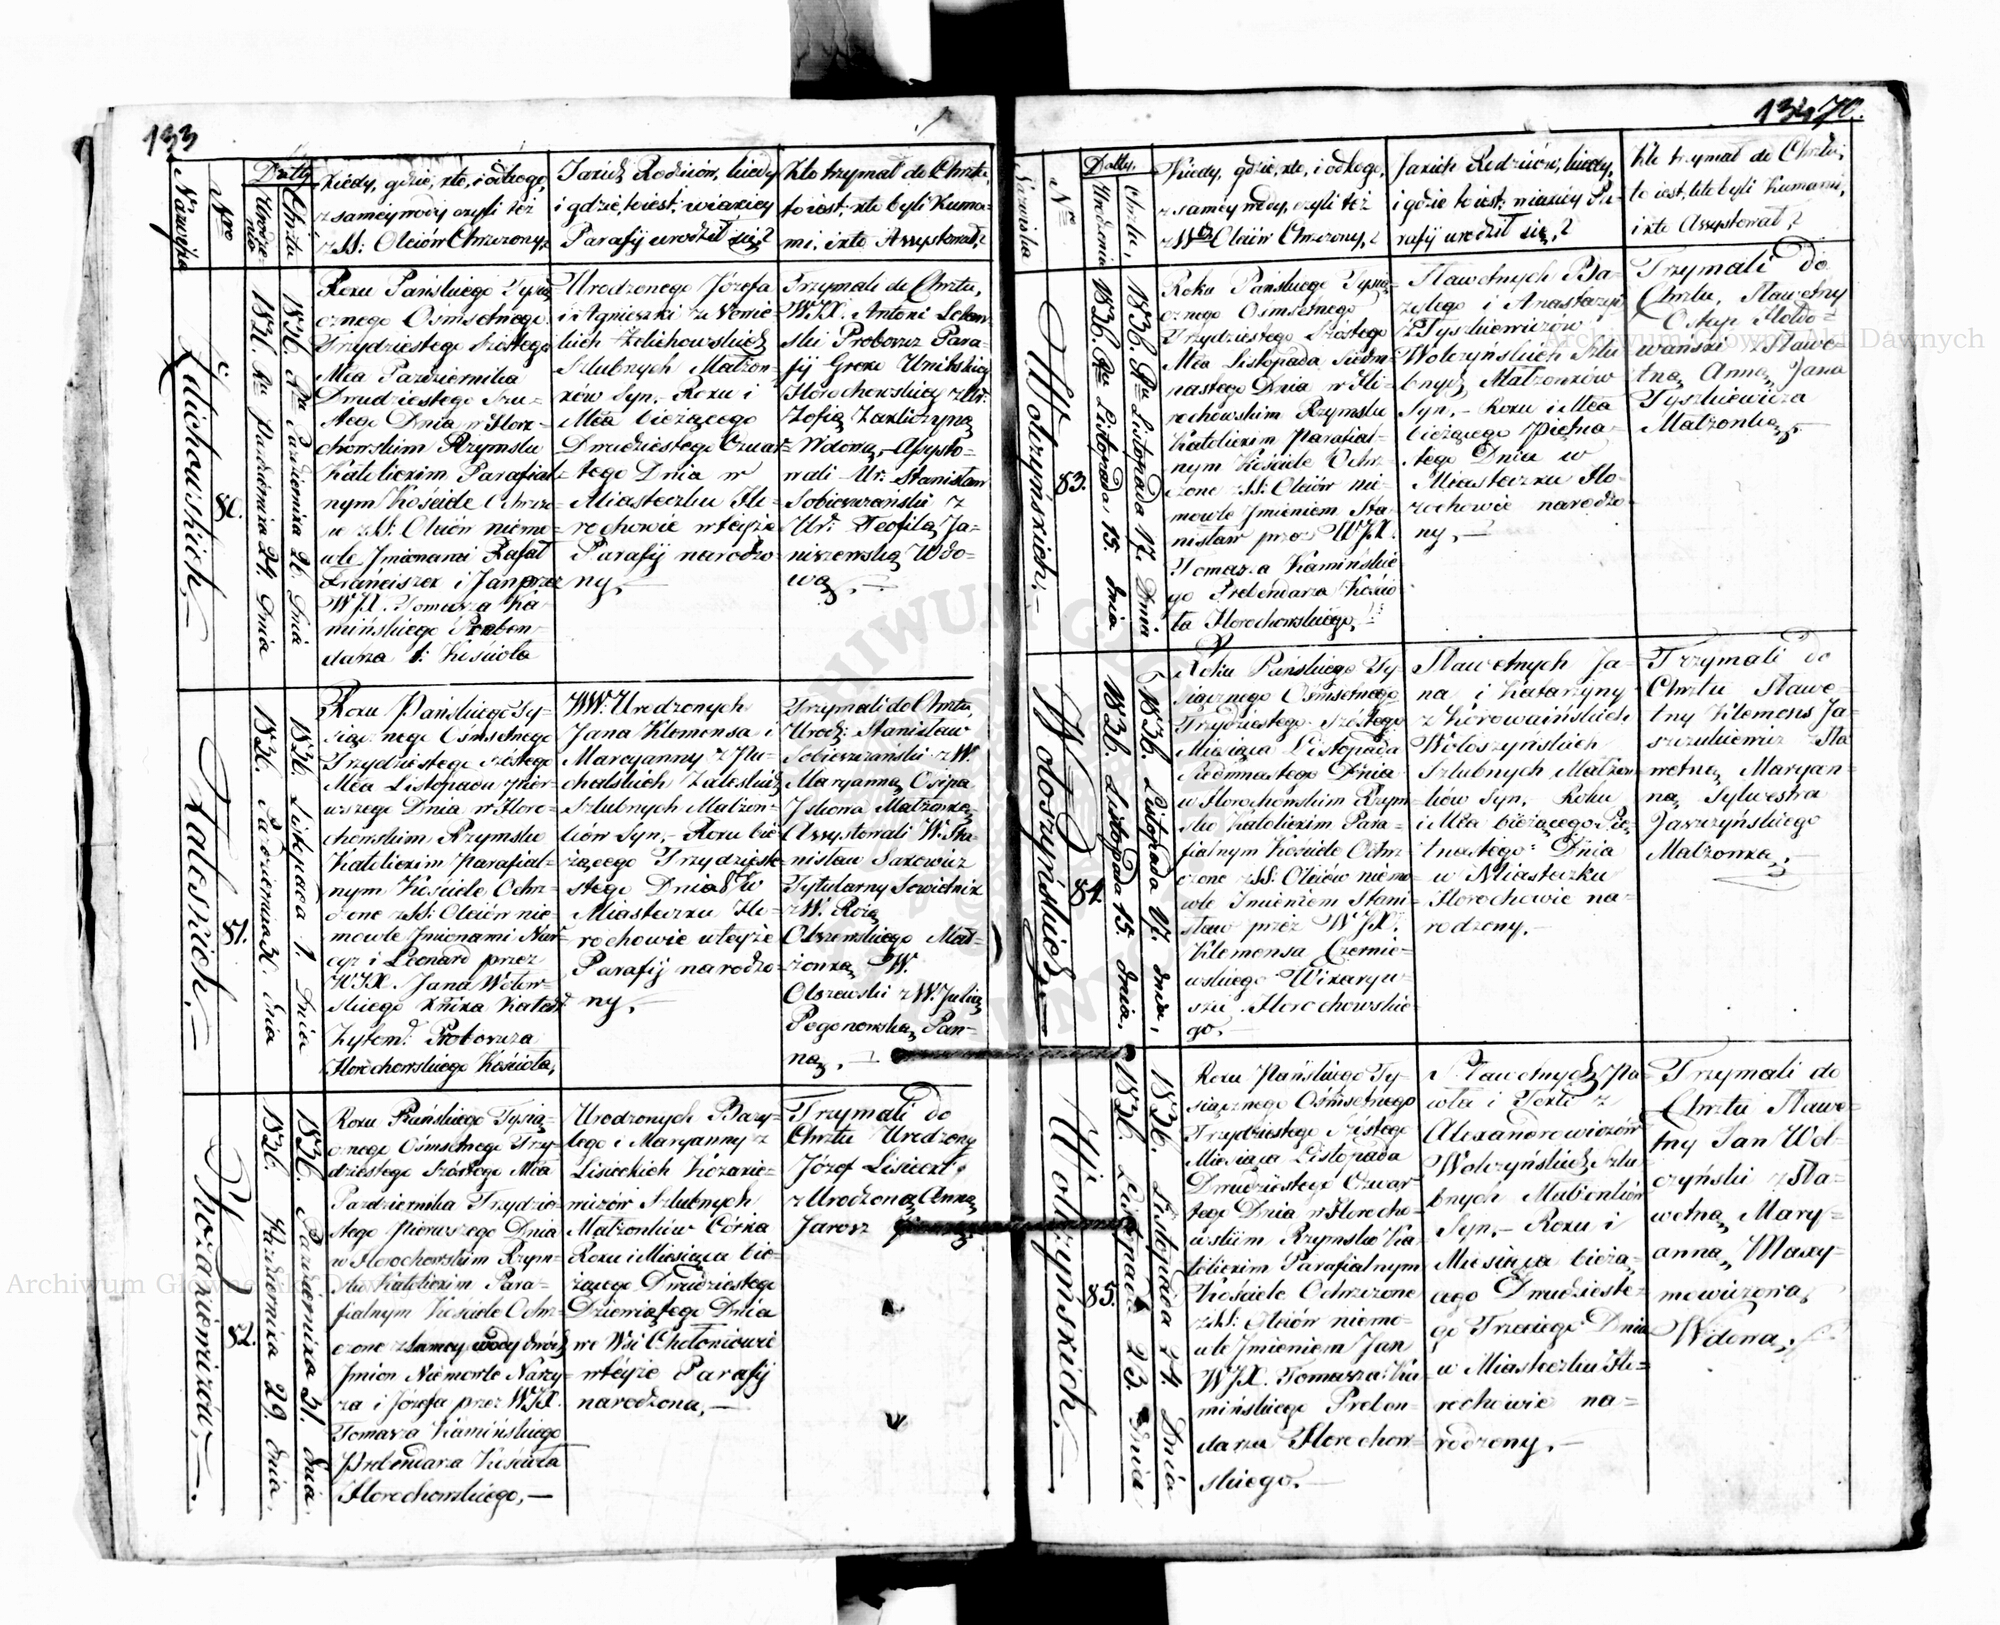 133
Nazwiska
Nro
Datty
Urodzenia
Chrztu
Kiedy, gdzie, kto, i od kogo,
z samey wody czyli też
z SS: Oleiów Chrzczony?
Jakich Rodziców, kiedy
i gdzie, to iest: w iakiey
Parafij urodził się?
Kto trzymał do Chrztu,
to iest: kto byli Kuma-
mi, i kto Assystował?
Żelichowskich,
80.
1836. Ru Października 24. Dnia
1836. Ru Października 26. Dnia
Roku Pańskiego Tysią
cznego Osmsetnego
Trzydziestego Szóstego
Mca Października
Dwudziestego Szó-
stego Dnia w Horo-
chowskim Rzymsko
Katolickim Parafial-
nym Kościele Ochrzczo-
no z SS: Oleiów niemo-
wle Imionami Rafał
Franciszek i Jan przez
WJX. Tomasza Ka-
mińskiego Preben-
darza t: Kościoła
Urodzonego Józefa
i Agnieszki z
Żelichowskich
Szlubnych Małżon-
ków Syn,- Roku i
Mca bieżącego
Dwudziestego Czwar-
tego Dnia w
Miasteczku Ho-
rochowie w teyże
Parafij narodzo-
ny,-
Trzymali do Chrztu,
WJX. Antoni
Proboszcz Para-
fij Greko Unitskiey
Horochowskiey z Ur:
Zofią
Wdową,- Assysto-
wali Ur: Stanisław
Sobieszczański z
Ur: Teofilą Ja-
niszewską Wdo-
wą,-
Zaleskich,-
81.
1836. Października 30. dnia
1836. Listopada 1. Dnia
Roku Pańskiego Ty-
siącznego Osmsetnego
Trzydziestego Szóstego
Mca Listopada Pier-
wszego Dnia w Horo-
chowskim Rzymsko
Katolickim Parafial-
nym Kościele Ochrz-
czono z SS: Oleiów nie-
mowle Imionami Nar-
cyz i Leonard przez
WJX. Jana
Kated:
Żytom: Proboszcza
Horochowskiego Kościoła,
WW: Urodzonych
Jana Klemensa i
Maryanny z Pu-
chalskich Zaleskich
Szlubnych Małżon-
ków Syn,- Roku bie-
żącego Trzydzie-
stego Dnia w
Miasteczku Ho-
rochowie w teyże
Parafij narodzo-
ny,-
Trzymali do Chrztu,
Urodz: Stanisław
Sobieszczański z W.
Maryanną Osipa
Małżonką
Assystowali W. Sta-
nisław
Tytularny Sowietnik
z W. Rozą
Olszewskiego Mał-
żonką W.
Olszewski z W. Julią
Pogonowską Pan-
ną,-
Kozakiewiczów,-
82.
1836. Października 29. dnia,
1836. Października 31. dnia,
Roku Pańskiego Tysią-
cznego Osmsetnego Trzy-
dziestego Szóstego Mca
Października Trzydzie-
stego Pierwszego Dnia
w Horochowskim Rzym-
sko Katolickim Para-
fialnym Kościele Ochrz-
czono z samey wody dwóch
Imion Niemowle
i Józefa przez WJX.
Tomasza Kamińskiego
Prebendarza Kościoła
Horochowskiego,-
Urodzonych Bazy-
lego i Maryanny z
Lisieckich Kozakie-
wiczów Szlubnych
Małżonków Córka
Roku i Miesiąca bie-
żącego Dwudziestego
Dziewiątego Dnia
we Wsi Chołoniowie
w teyże Parafij
narodzona,-
Trzymali do
Chrztu Urodzony
Józef Lisiecki
z Urodzoną Anną
Jarosz
134
70.
Nazwiska
Nro
Datty.
Urodzenia
Chrztu,
Kiedy, gdzie, kto, i od kogo,
z samey wody, czyli też
z SS Oleiów Chrzczony,?
Jakich Rodziców, kiedy,
i gdzie to iest: w iakiey Pa-
rafij urodził się,?
Kto trzymał do Chrztu,
to iest, kto byli Kumami,
i kto Assystował,?
Wołczyńskich,-
83.
1836. Ru Listopada, 15. dnia
1836. Ru Listopada 17. Dnia
Roku Pańskiego Tysią-
cznego Osmsetnego
Trzydziestego Szóstego
Mca Listopada Siedm-
nastego Dnia w Ho-
rochowskim Rzymsko
Katolickim Parafial-
nym Kościele Ochrz-
czono z SS: Oleiów nie-
mowle Imieniem Sta-
nisław przez WJX.
Tomasza Kamińskie-
go Prebendarza Kościo-
ła Horochowskiego,
Sławetnych Ba-
zylego i Anastazyi
z Tyszkiewiczów
Wołczyńskich Szlu-
bnych Małżonków
Syn,- Roku i Mca
bieżącego Piętna-
stego Dnia w
Miasteczku Ho-
rochowie narodzo-
ny,-
Trzymali do
Chrztu, Sławetny
Ostap Mołdo-
wański z Sławe-
tną Anną Jana
Tyszkiewicza
Małżonką,-
Wołoszyńskich,-
84.
1836. Listopada 15. dnia,
1836. Listopada 17. dnia,
Roku Pańskiego Ty-
siącznego Osmsetnego
Trzydziestego Szóstego
Miesiąca Listopada
Siedmnastego Dnia
w Horochowskim Rzym-
sko Katolickim Para-
fialnym Kościele Ochrz-
czono z SS: Oleiów niemo-
wle Imieniem Stani-
sław przez WJX.
Klemensa Czernie-
wskiego Wikaryu-
sza Horochowskie-
go,-
Sławetnych Ja-
na i Katarzyny
z
Wołoszyńskich
Szlubnych Małżon-
ków Syn,- Roku
i Mca bieżącego Pię-
tnastego Dnia
w Miasteczku
Horochowie na-
rodzony,-
Trzymali do
Chrztu Sławe-
tny Klemens Ja-
szczukiewicz z Sła-
wetną Maryan-
ną Sylwestra
Jaszczyńskiego
Małżonką,-
Wołczyńskich,-
85.
1836. Listopada 23. Dnia
1836. Listopada 24. Dnia
Roku Pańskiego Ty-
siącznego Osmsetnego
Trzydziestego Szóstego
Miesiąca Listopada
Dwudziestego Czwar-
tego Dnia w Horocho-
wskim Rzymsko Ka-
tolickim Parafialnym
Kościele Ochrzczono
z SS: Oleiów niemo-
wle Imieniem Jan
WJX. Tomasza Ka-
mińskiego Preben-
darza Horochow-
skiego,-
Sławetnych Pa-
wła i Tekli z
Alexandrowiczów
Wołczyńskich Szlu-
bnych Małżonków
Syn,- Roku i
Miesiąca bieżą-
cego Dwudzieste-
go Trzeciego Dnia
w Miasteczku Ho-
rochowie na-
rodzony,-
Trzymali do
Chrztu Sławe-
tny Jan Woł-
czyński z Sła-
wetną Mary-
anną Maxy-
mowiczową
Wdową,-
Archiwum Główne Akt Dawnych
Archiwum Główne Akt Dawnych